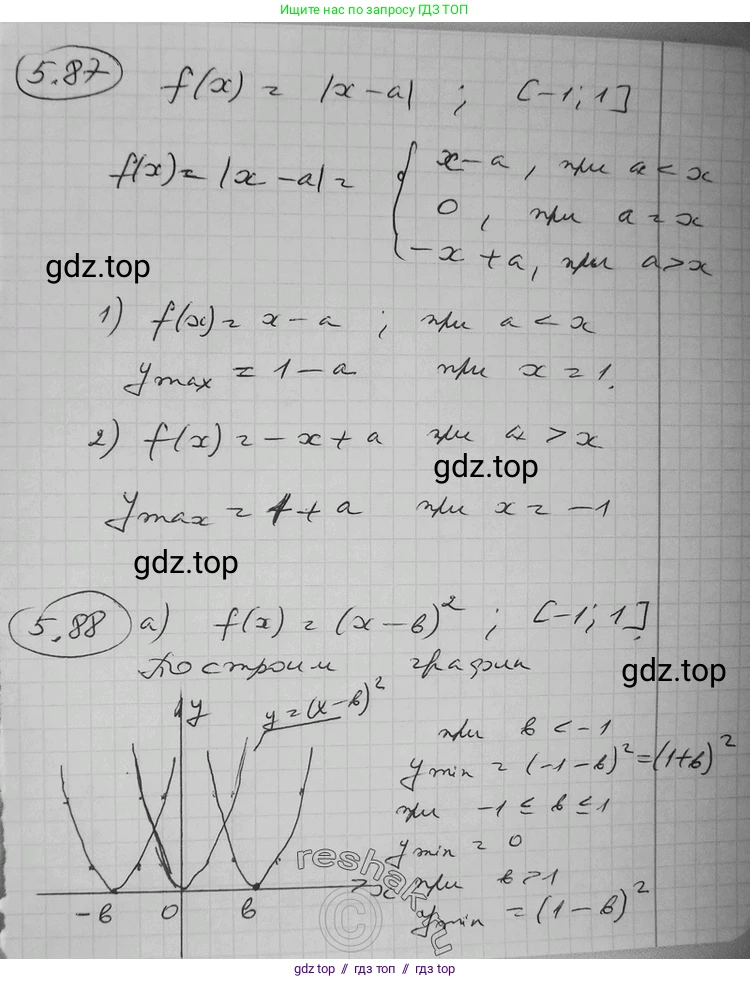 Ищите нас по запросу ГДЗ ТОП
5.87 f(x) = |x-a| ; [-1; 1]
f(x) = |x-a| = { x-a, при a < x
0, при a = x
-x+a, при a > x
gdz.top
1) f(x) = x-a ; при a < x
y max = 1-a при x = 1.
2) f(x) = -x+a при a > x
gdz.top
y max = 1+a при x = -1
gdz.top
5.88 а) f(x) = (x-в)² ; [-1; 1]
gdz.top
Построим графики
y
y = (x-в)²
при в < -1
y min = (-1-в)² = (1+в)²
при -1 ≤ в ≤ 1
y min = 0
при в > 1
y min = (1-в)²
-в 0 в x
reshak.ru
©
gdz.top // гдз.top // гдз.top